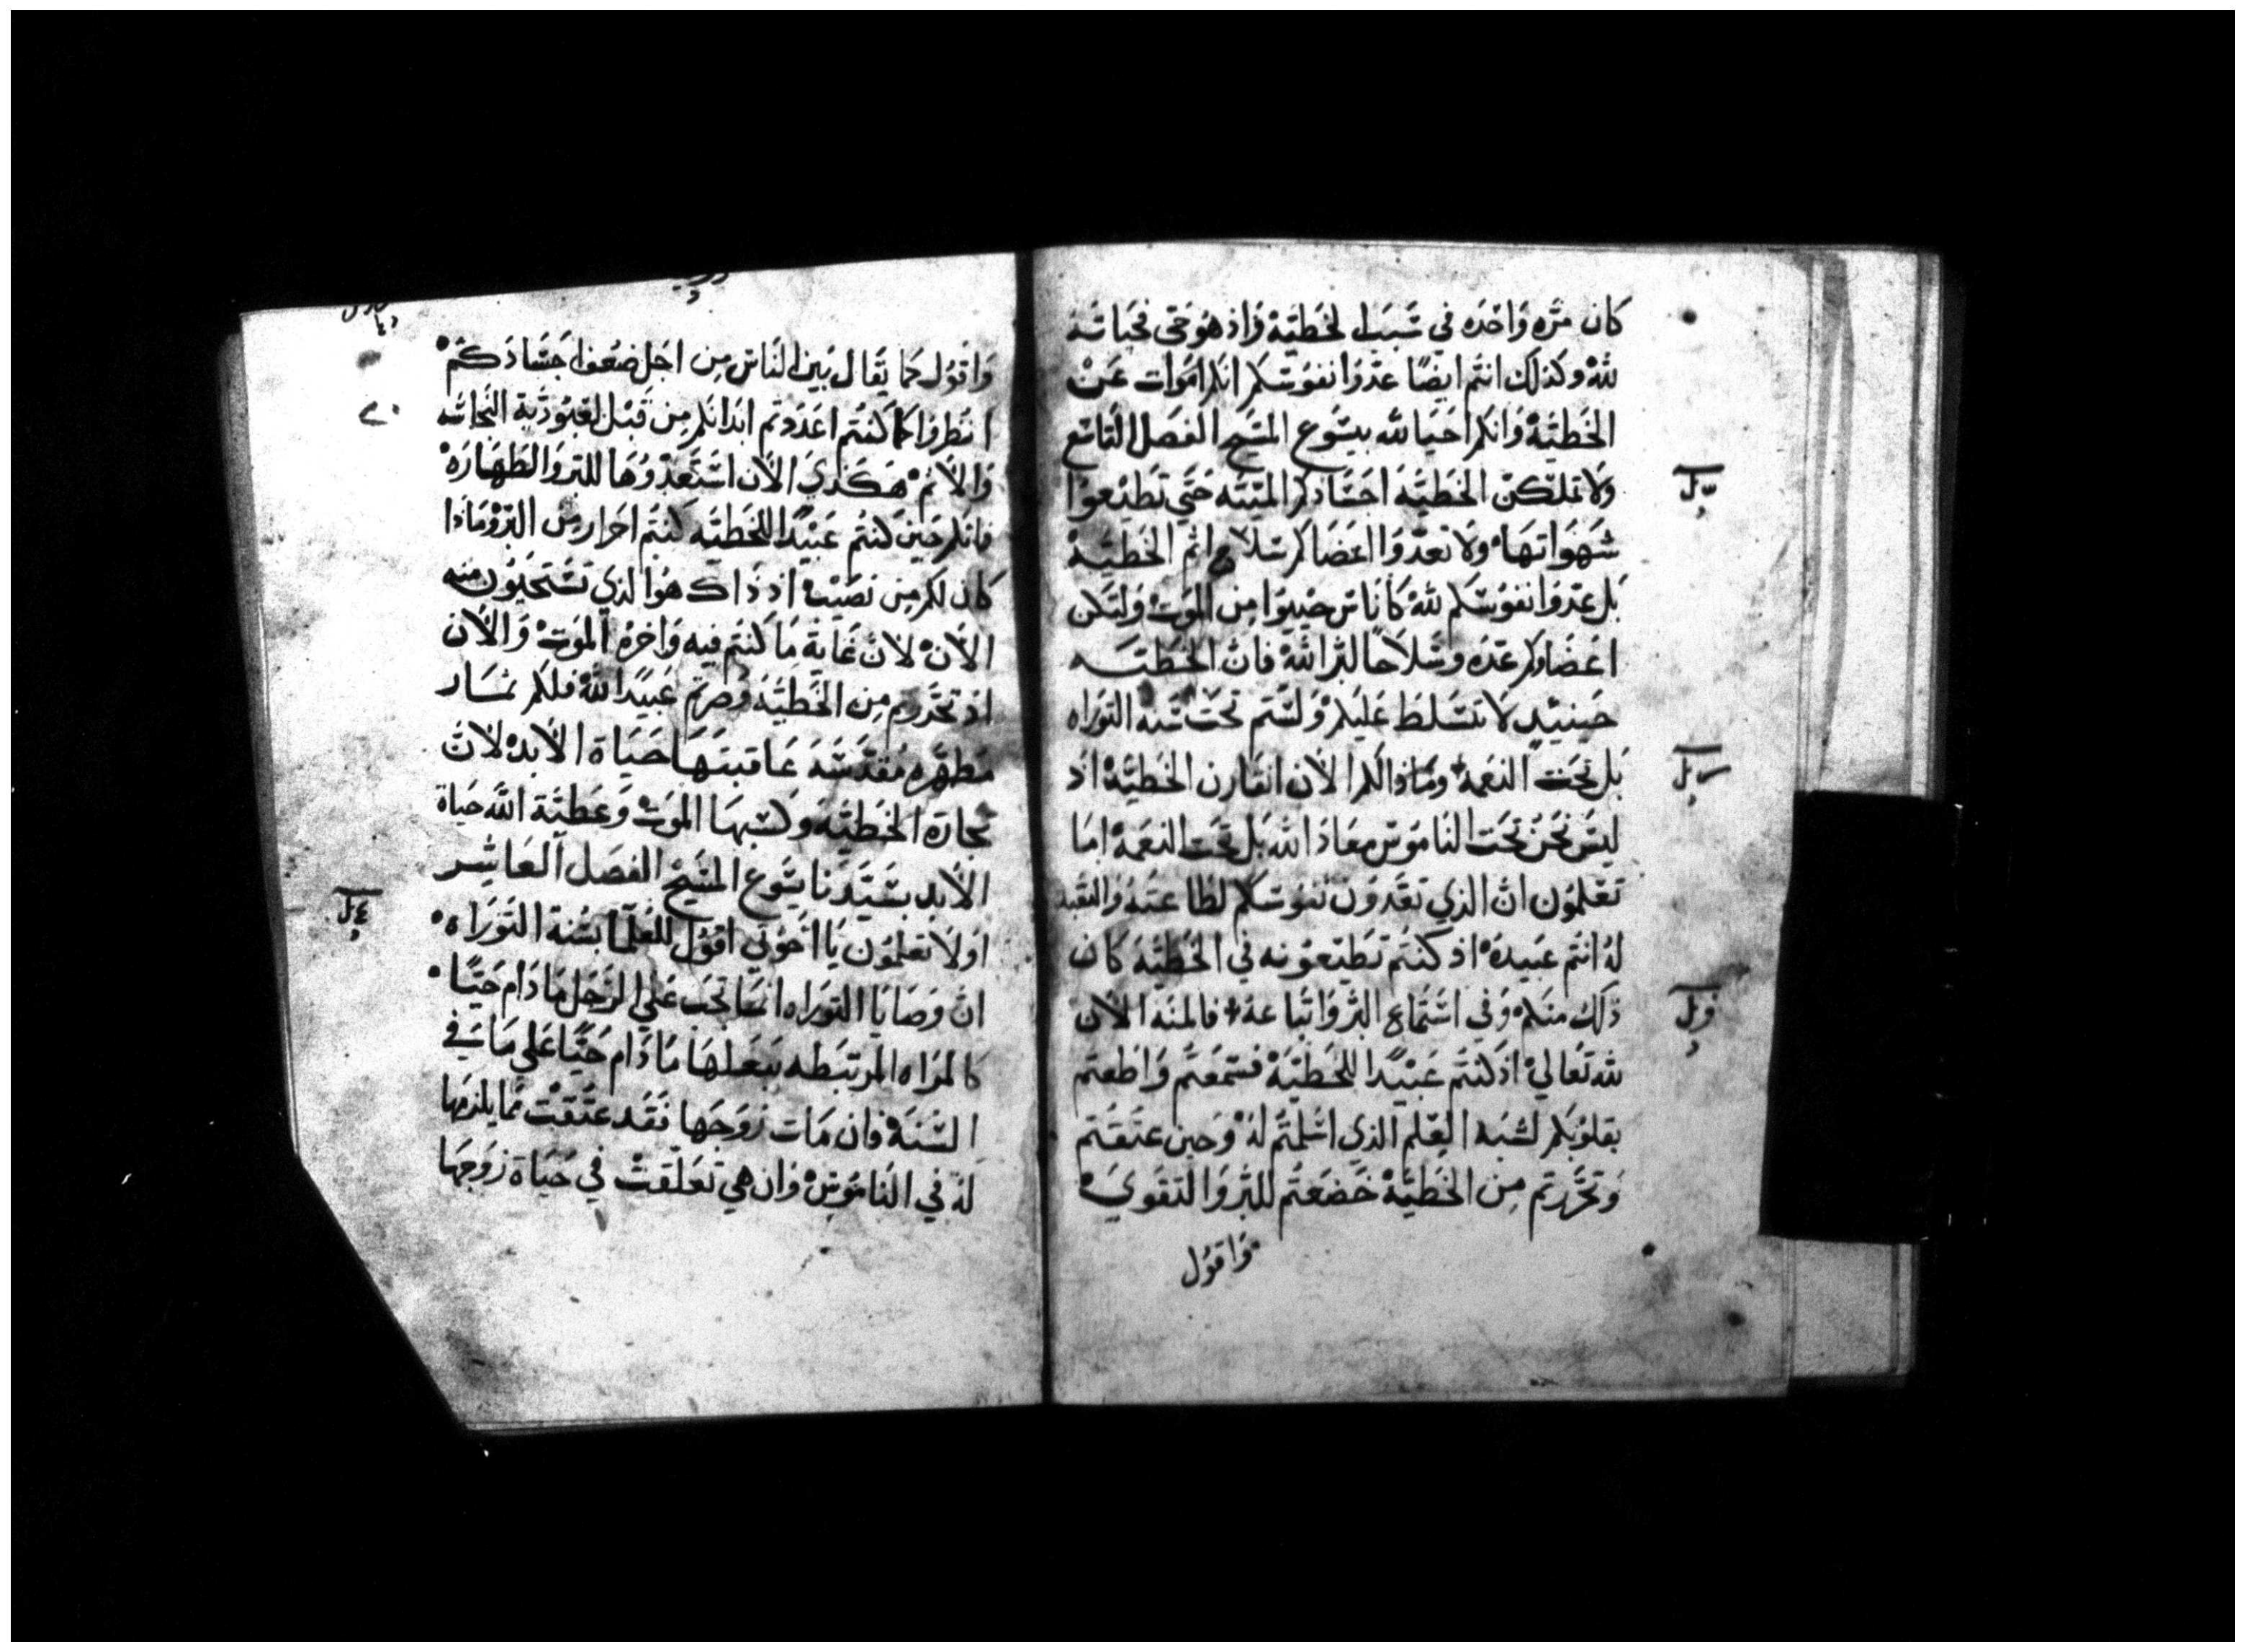 كان مره واحده في سبب الخطيه واذ هو حي فحياته
لله وكذلك انتم ايضا عدوا نفوسكم انكم اموات عن
الخطيه وانكم احيا لله بيسوع المسيح الفصل التاسع
ولا تملكن الخطيه اجسادكم الميته حتي تطيعوا
شهواتها ولا تعدوا اعضاكم سلاح اثم الخطيه
بل عدوا نفوسكم لله كاناس حييوا من الموت ولتكن
اعضاوكم عده وسلاحا لبر الله فان الخطيه
حينيد لا تتسلط عليكم ولستم تحت سنه التوراه
بل تحت النعمه وماذا لكم الان انقارن الخطيه اذ
ليس نحن تحت الناموس معاذ الله بل تحت النعمه اما
تعلمون ان الذي تعدون نفوسكم لطاعته والتعبد
له انتم عبيده اذ كنتم تطيعونه في الخطيه كان
ذلك منكم وفي استماع البر واتباعه فالمنه الان
لله تعالي اذ كنتم عبيدا للخطيه فسمعتم واطعتم
بقلوبكم لشبه العلم الذي اسلمتم له وحين عتقتم
وتحررتم من الخطيه خضعتم للبر والتقوي
واقول
واقول كما يقال بين الناس من اجل ضعف اجسادكم
انظروا كما كنتم اعددتم ابدانكم من قبل لعبودية النجاسه
والاثم هكذي الان استعدوها للبر والطهاره
فانكم حين كنتم عبيدا للخطيه كنتم احرار من البر وماذا
كان لكم من نصيب اذ ذاك هو الذي تستحيون منه
الان لان غاية ما كنتم فيه واخره الموت والان
اذ تحررتم من الخطيه وصرتم عبيدا لله فلكم ثمار
مطهره مقدسه عاقبتها حياة الابد لان
تجارة الخطيه وكسبها الموت وعطية الله حياة
الابد بسيدنا يسوع المسيح الفصل العاشر
اولا تعلمون يا اخوتي اقول للعلما بسنة التوراه
ان وصايا التوراه انما تجب علي الرجل ما دام حيا
كالمراه المرتبطه ببعلها ما دام حيا علي ما في
السنه فان مات زوجها فقد عتقت مما يلزمها
له في الناموس وان هي تعلقت في حياة زوجها